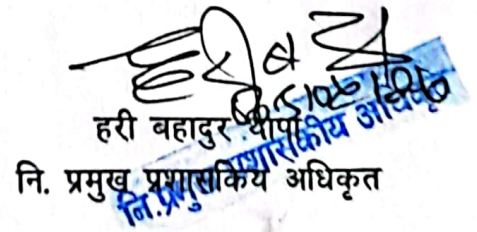 हरी बहादुर थापा
नि. प्रमुख प्रशासकिय अधिकृत
नि.प्रमुख प्रशासकीय अधिकृत